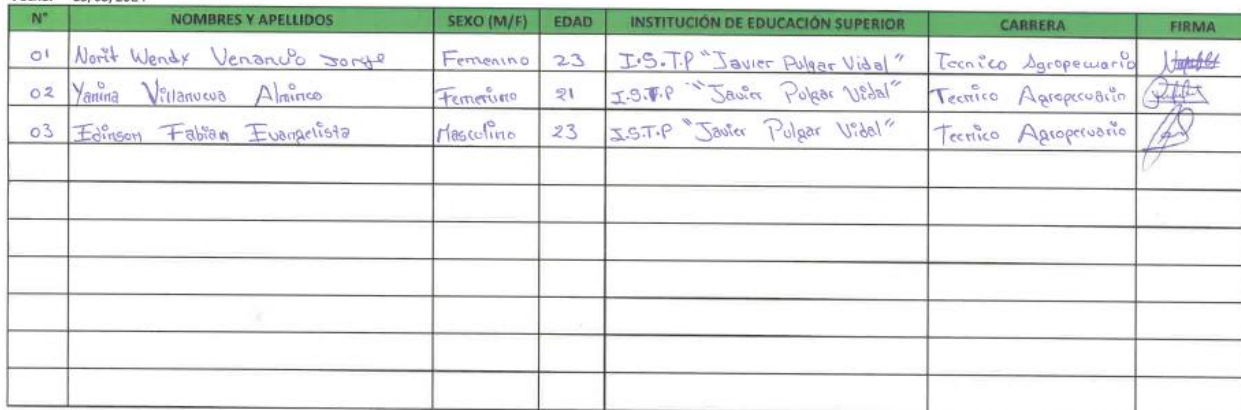 N° NOMBRES Y APELLIDOS SEXO (M/F) EDAD INSTITUCIÓN DE EDUCACIÓN SUPERIOR CARRERA FIRMA
01 Norit Wendy Venancio Jorge Femenino 23 I.S.T.P "Javier Pulgar Vidal" Tecnico Agropecuario
02 Yanina Villanueva Alminco Femenino 21 I.S.T.P "Javier Pulgar Vidal" Tecnico Agropecuario
03 Edinson Fabian Evangelista Masculino 23 I.S.T.P "Javier Pulgar Vidal" Tecnico Agropecuario